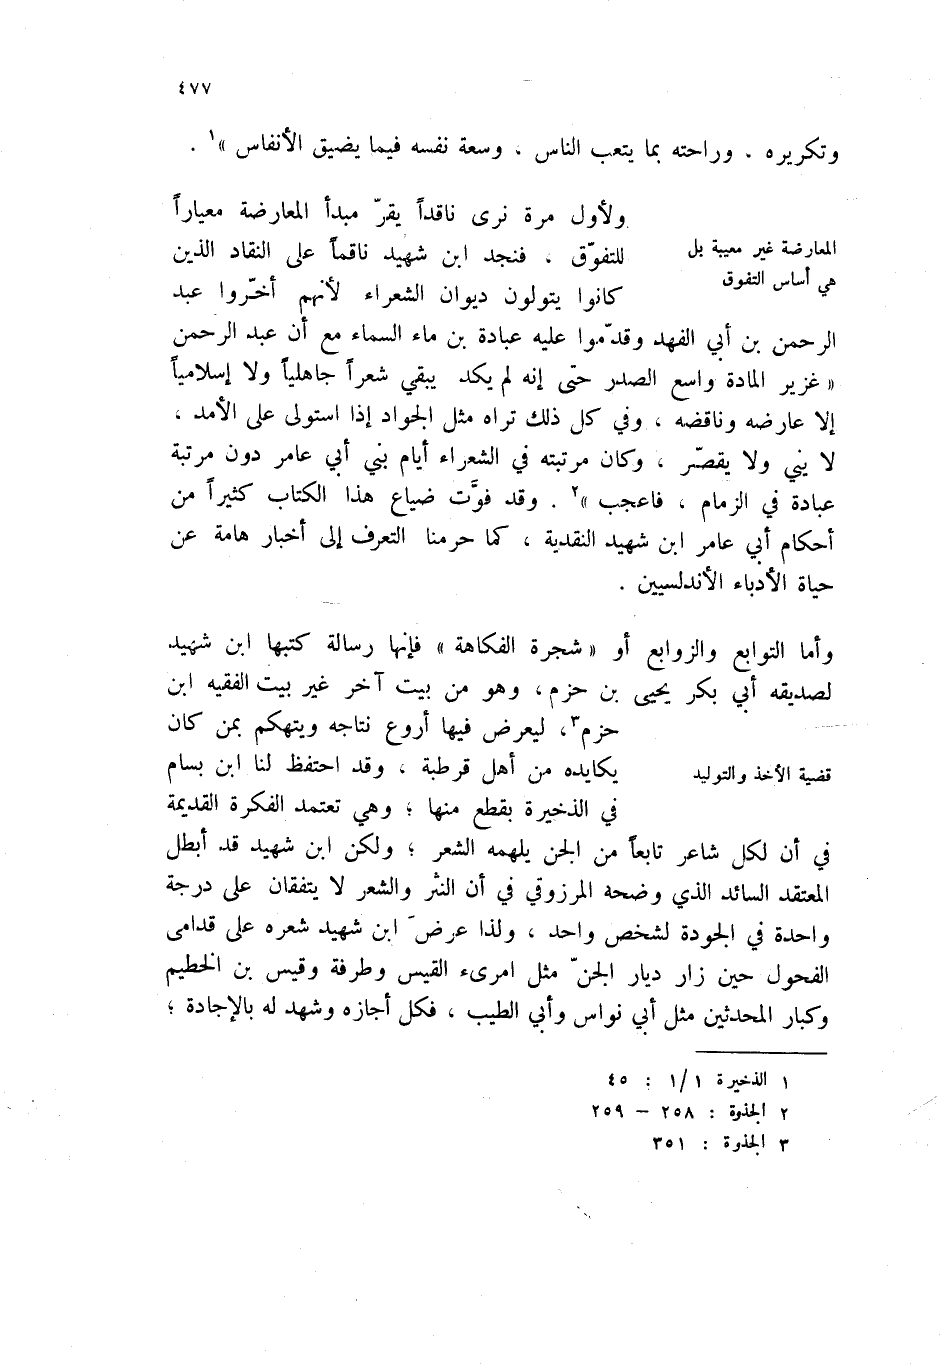 ٤٧٧
وتكريره . وراحته بما يتعب الناس ، وسعة نفسه فيما يضيق الأنفاس »١ .
ولأول مرة نرى ناقداً يقرّ مبدأ المعارضة معياراً
المعارضة غير معيبة بل
هي أساس التفوق
للتفوّق ، فنجد ابن شهيد ناقماً على النقاد الذين
كانوا يتولون ديوان الشعراء لأنهم أخّروا عبد
الرحمن بن أبي الفهد وقدّموا عليه عبادة بن ماء السماء مع أن عبد الرحمن
« غزير المادة واسع الصدر حتى إنه لم يكد يبقي شعراً جاهلياً ولا إسلامياً
إلا عارضه وناقضه ، وفي كل ذلك تراه مثل الجواد إذا استولى على الأمد ،
لا يني ولا يقصّر ، وكان مرتبته في الشعراء أيام بني أبي عامر دون مرتبة
عبادة في الزمام ، فاعجب »٢ . وقد فوَّت ضياع هذا الكتاب كثيراً من
أحكام أبي عامر ابن شهيد النقدية ، كما حرمنا التعرف إلى أخبار هامة عن
حياة الأدباء الأندلسيين .
وأما التوابع والزوابع أو « شجرة الفكاهة » فإنها رسالة كتبها ابن شهيد
لصديقه أبي بكر يحيى بن حزم ، وهو من بيت آخر غير بيت الفقيه ابن
حزم٣ ، ليعرض فيها أروع نتاجه ويتهكم بمن كان
قضية الأخذ والتوليد
يكايده من أهل قرطبة ، وقد احتفظ لنا ابن بسام
في الذخيرة بقطع منها ؛ وهي تعتمد الفكرة القديمة
في أن لكل شاعر تابعاً من الجن يلهمه الشعر ؛ ولكن ابن شهيد قد أبطل
المعتقد السائد الذي وضحه المرزوقي في أن النثر والشعر لا يتفقان على درجة
واحدة في الجودة لشخص واحد ، ولذا عرضَ ابن شهيد شعره على قدامى
الفحول حين زار ديار الجنّ مثل امرىء القيس وطرفة وقيس بن الخطيم
وكبار المحدثين مثل أبي نواس وأبي الطيب ، فكل أجازه وشهد له بالإجادة ؛
١ الذخيرة ١/١ : ٤٥
٢ الجذوة : ٢٥٨ – ٢٥٩
٣ الجذوة : ٣٥١